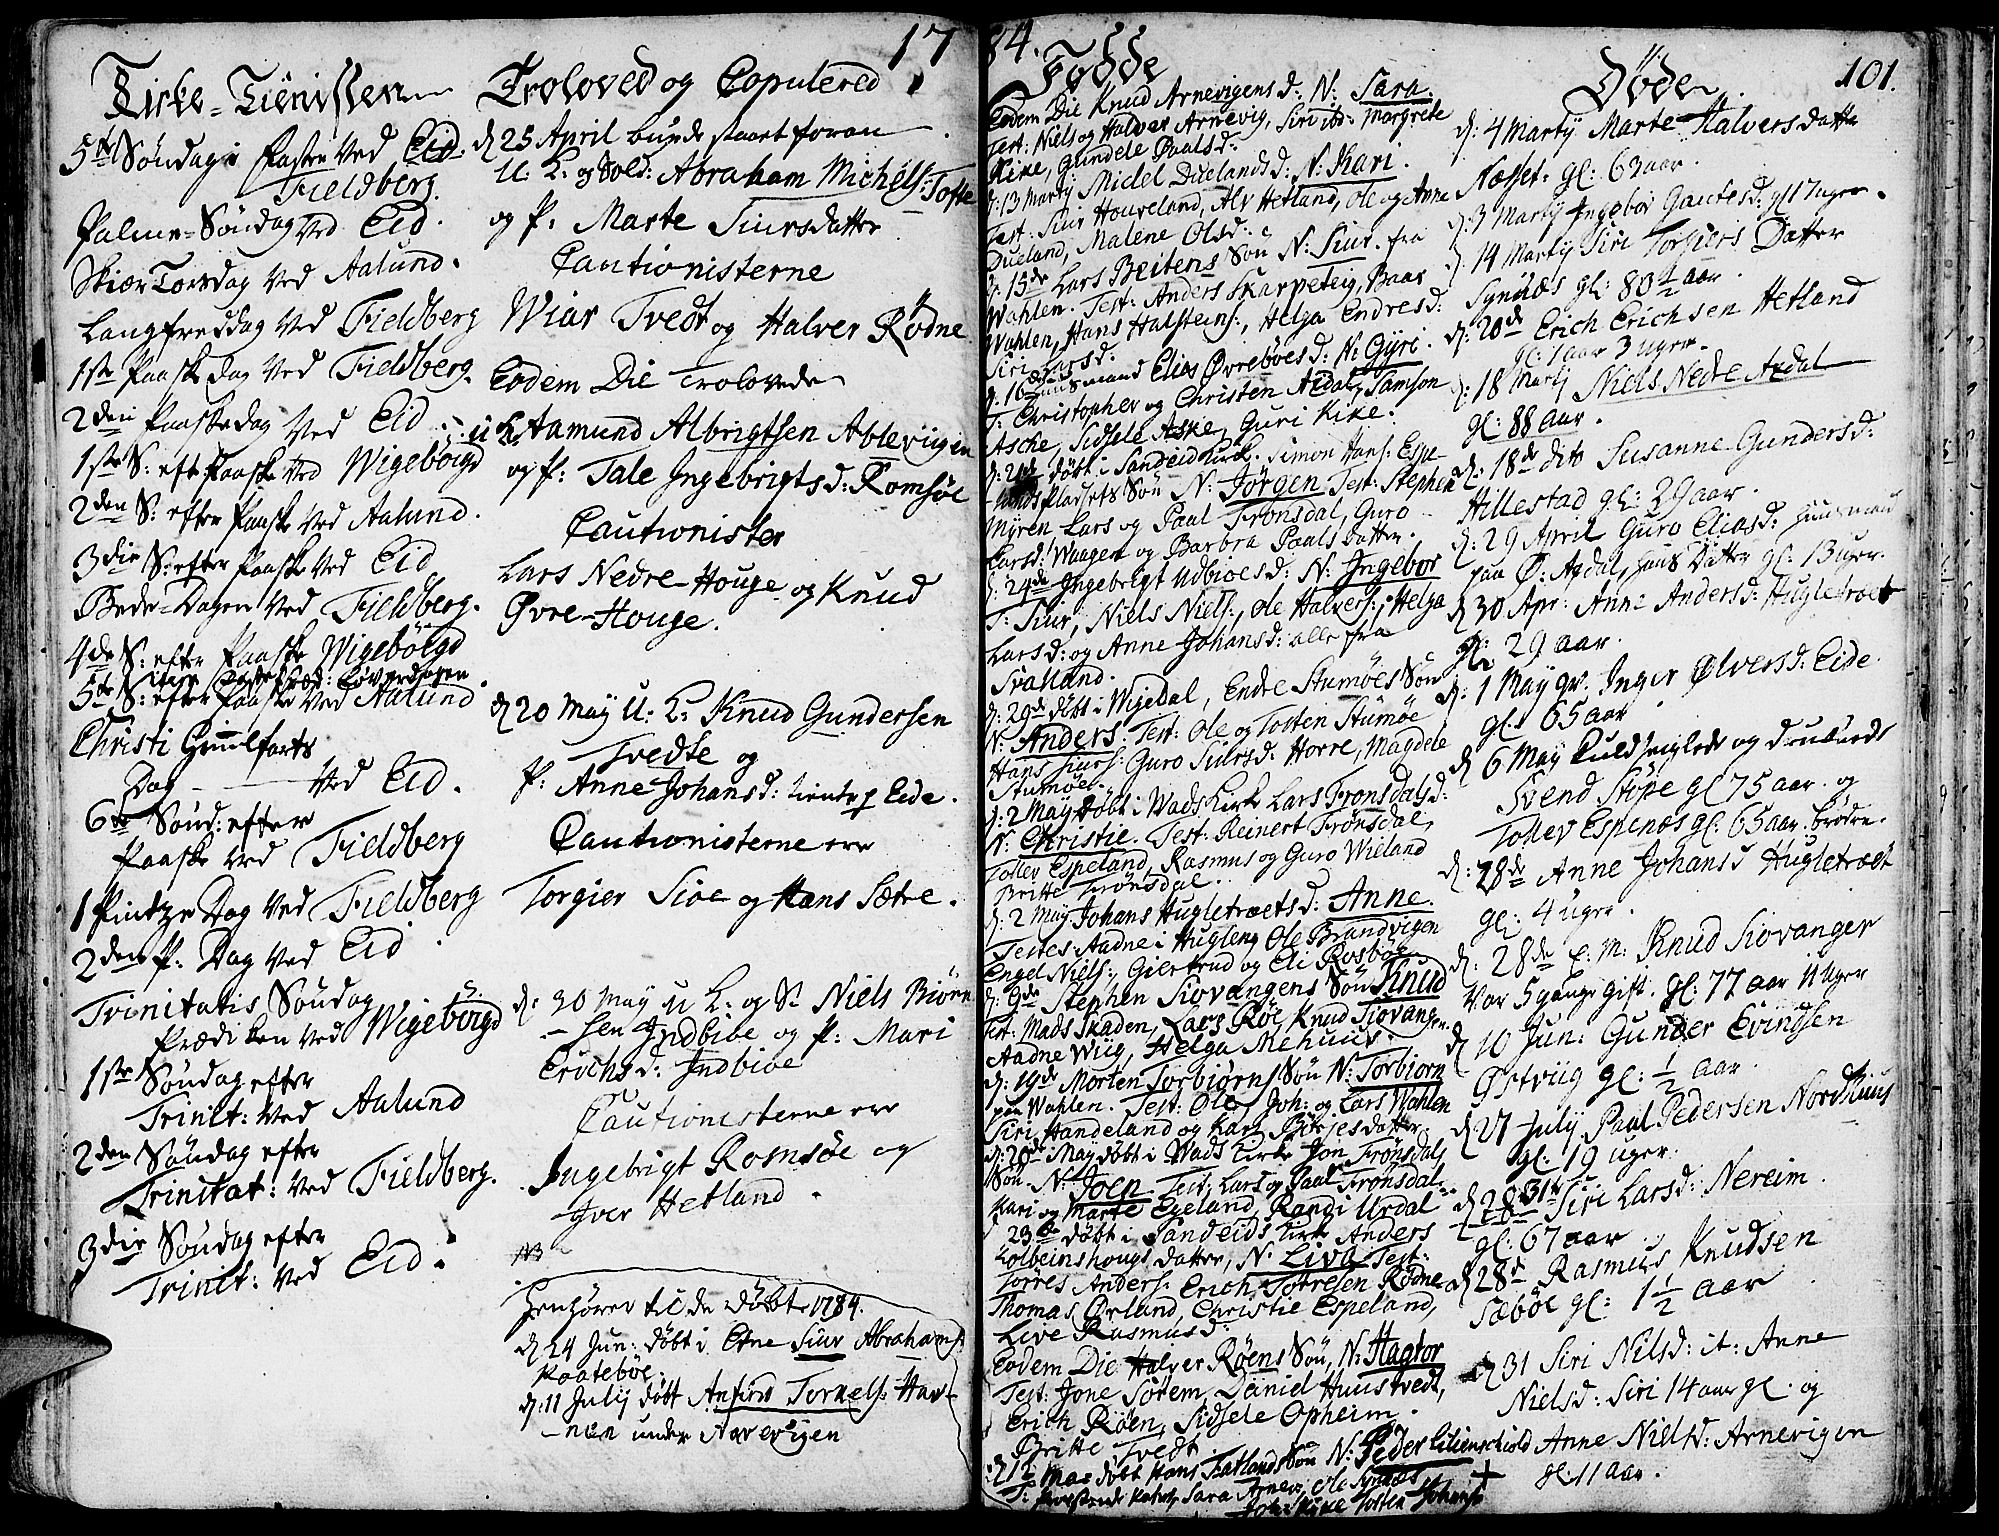 1784.
101.
Kirke-Tienisten
5te Søndag i Fasten Ved Eid
Fieldberg.
Palme-Søndag Ved Eid.
Skiær Torsdag Ved Aalund.
Langfreddag Ved Fieldberg
1ste Paaske Dag Ved Fieldberg.
2den Paaskedag Ved Eid
1ste S: eft Paaske Ved Wigeböigd
2den S: efter Paaske Ved Aalund.
3die S: efter Paaske Ved Eid
Bede-Dagen Ved Fieldberg.
4de S: efter Paaske Wigeböigd
5te S: efter Paaske Ved Aalund
Christi Himelfarts
Dag Ved Eid.
6te Sönd: efter
Paaske Ved Fieldberg
1 Pintze Dag Ved Fieldberg
2den P. Dag Ved Eid
Trinitatis Söndag
Prædiken Ved Wigebörgd
1ste Söndag efter
Trinit: Ved Aalund
2den Söndag efter
Trinitat: Ved Fieldberg.
3die Söndag efter
Trinit: Ved Eid.
Troloved og Copulered
d 25 April
U: K: og Sold: Abraham Michels: Tofte
og P: Marte Siursdatter
Cautionisterne
Wiar Tvedt og Halver Rödne
Eodem Die Trolovede
u K: Aamund Albrigtsen Ablevigen
og P: Tale Ingebrigtsd: Romsöe
Cautionister
Lars Nedre-Houge og Knud
Øvre-Houge.
d 20 May U: K: Knud Gundersen
Tvedte og
P: Anne Johansd: tiente p Eide.
Cautionisterne ere
Torgier Sioe og Hans Sætre.
d: 30 May u K: og S: Niels Biörn
-sen Indbioe og P: Mari
Erichsd: Indbioe
Cautionisterne ere
Ingebrigt Romsöe og
Iver Hetland.
NB
Henhörer til de Döbte 1784.
d 24 Jun: döbt i Etne Siur Abrahams:
Kaateböe.
d: 11 July döbt Anfind Tornels: Hav-
-nen under Arnevigen
Födde
Eodem Die Knud Arnevigens d: N: Sara.
Test: Niels og Halver Arnevig, Siri ibd: Margrete
Kike, Gundele Paalsd:
d: 13 Marty Midel Duelands d: N: Kari.
Test: Siur Houveland, Alv Hetland, Ole og Anne
Dueland, Malene Olsd:
d: 15de Lars Beitens Sön N: Siur. fra
Wahlen. Test: Anders Skarpeteig, Baar
Wahlen, Hans Halsteins:, Helga Endresd:
Siri Larsd:
d. 16 Huusmand Elias Øvreböes d: N: Gyri.
T: Christopher og Christen Axdal, Samson
Asche, Sidsele Aske, Guri Kike.
döbt i Sandeid Kirk. Simon Hans: Espe-
-lands Pladsets Sön N: Jörgen Test: Stephen
Myren Lars og Paul Frönsdal, Guro
Larsd: Waagen og Barbra Paalsdatter.
d: 24de Ingebrigt Udbioes d: N: Ingebor
T: Siur, Niels Niels:, Ole Halvers:, Helga
Larsd: og Anne Johansd: alle fra
Svalland.
d: 29de döbt i Wigedal, Endre Stumöes Sön
N: Anders. Test: Ole og Tosten Stumöe
Hans Siurs: Guro Siursd: Horre, Magdele
Stumöe.
d: 2 May döbt i Wads Kirke Lars Frönsdals d:
N: Christie. Test: Reinert Frönsdal,
Tollev Espeland, Rasmus og Guro Wieland
Britte Frönsdal.
d: 2 May Johans Hugletræets d: Anne.
Testes Aadne i Huglen, Ole Brandvigen
Engel Niels:, Giertrud og Eli Rosböe
d: 9de Stephen Siovangens Sön Knud
Test: Mads Skaden, Lars Röe, Knud Siovangen
Aadne Wiig, Helga Mehuus.
d: 19de Morten Torbiörns Sön N: Torbiörn
paa Wahlen. Test: Ole, Joh: og Lars Wahlen
Siri Handeland og Kari datter.
d: 20de May döbt i Wads Kirke Jon Frönsdals
Sön N: Joen Test: Lars og Paul Frönsdal
Kari og Marte Egeland, Randi Urdal
23de döbt i Sandeids Kirke Anders
Kolbeinshougs Datter, N: Liva Test:
Torres Anders: Erich Torresen Rödne
Thomas Ørland, Christie Espeland,
Live Rasmusd:
Eodem Die Halver Röens Sön, N: Hagtor
Test: Jone Sörem, Daniel Huustvedt,
Erich Röen, Sidsele Opheim.
Britte Tvedt
döbt Hans Tratlands Sön N: Peder Lilienschiold
Døde
d: 4 Marty Marte Halversdatter
Næsset. gl: 63 aar.
d: 3 Marty Ingebor Gautesd: gl 17 uger.
d. 14 Marty Siri Torgiers Datter
Synnæs gl: 80½ aar.
d: 20de Erich Erichsen Hetland
gl: 1 aar 3 uger.
d: 18 Marty Niels Nedre Axdal
gl: 88 aar.
d: 18de dito Susanne Gundersd:
Hillestad gl: 29 aar.
d: 29 April Guro Eliasd: Huusmand
paa Ø: Axdal, hans Datter gl: 13 uger.
d 30 Apr: Anne Andersd: Hugletræet
gl: 29 aar.
d: 1 May qv. Inger Ølversd: Eide.
gl: 65 aar
d 6 May Kuldseylede og druknede
Svend Stöpe gl 75 aar. og
Tollev Espenæs gl: 65 aar. brödre.
d: 28de Anne Johansd Hugletræet
gl: 4 uger.
d: 28de e. m: Knud Siovangen
Var 5 gange gift. gl: 77 aar 11 Uger
d 10 Jun: Gunder Evindsen
Østviig gl: ½ aar.
d 27 July Paul Pedersen Nordhuus
gl: 19 uger.
31te Siri Larsd: Nereim.
gl: 67 aar
d 28de Rasmus Knudsen
Sæböe gl: 1½ aar
d 31 Siri Nilsd: it: Anne
Nielsd: Siri 14 aar gl. og
Anne Nielsd: Arnevigen
gl: 11 aar.